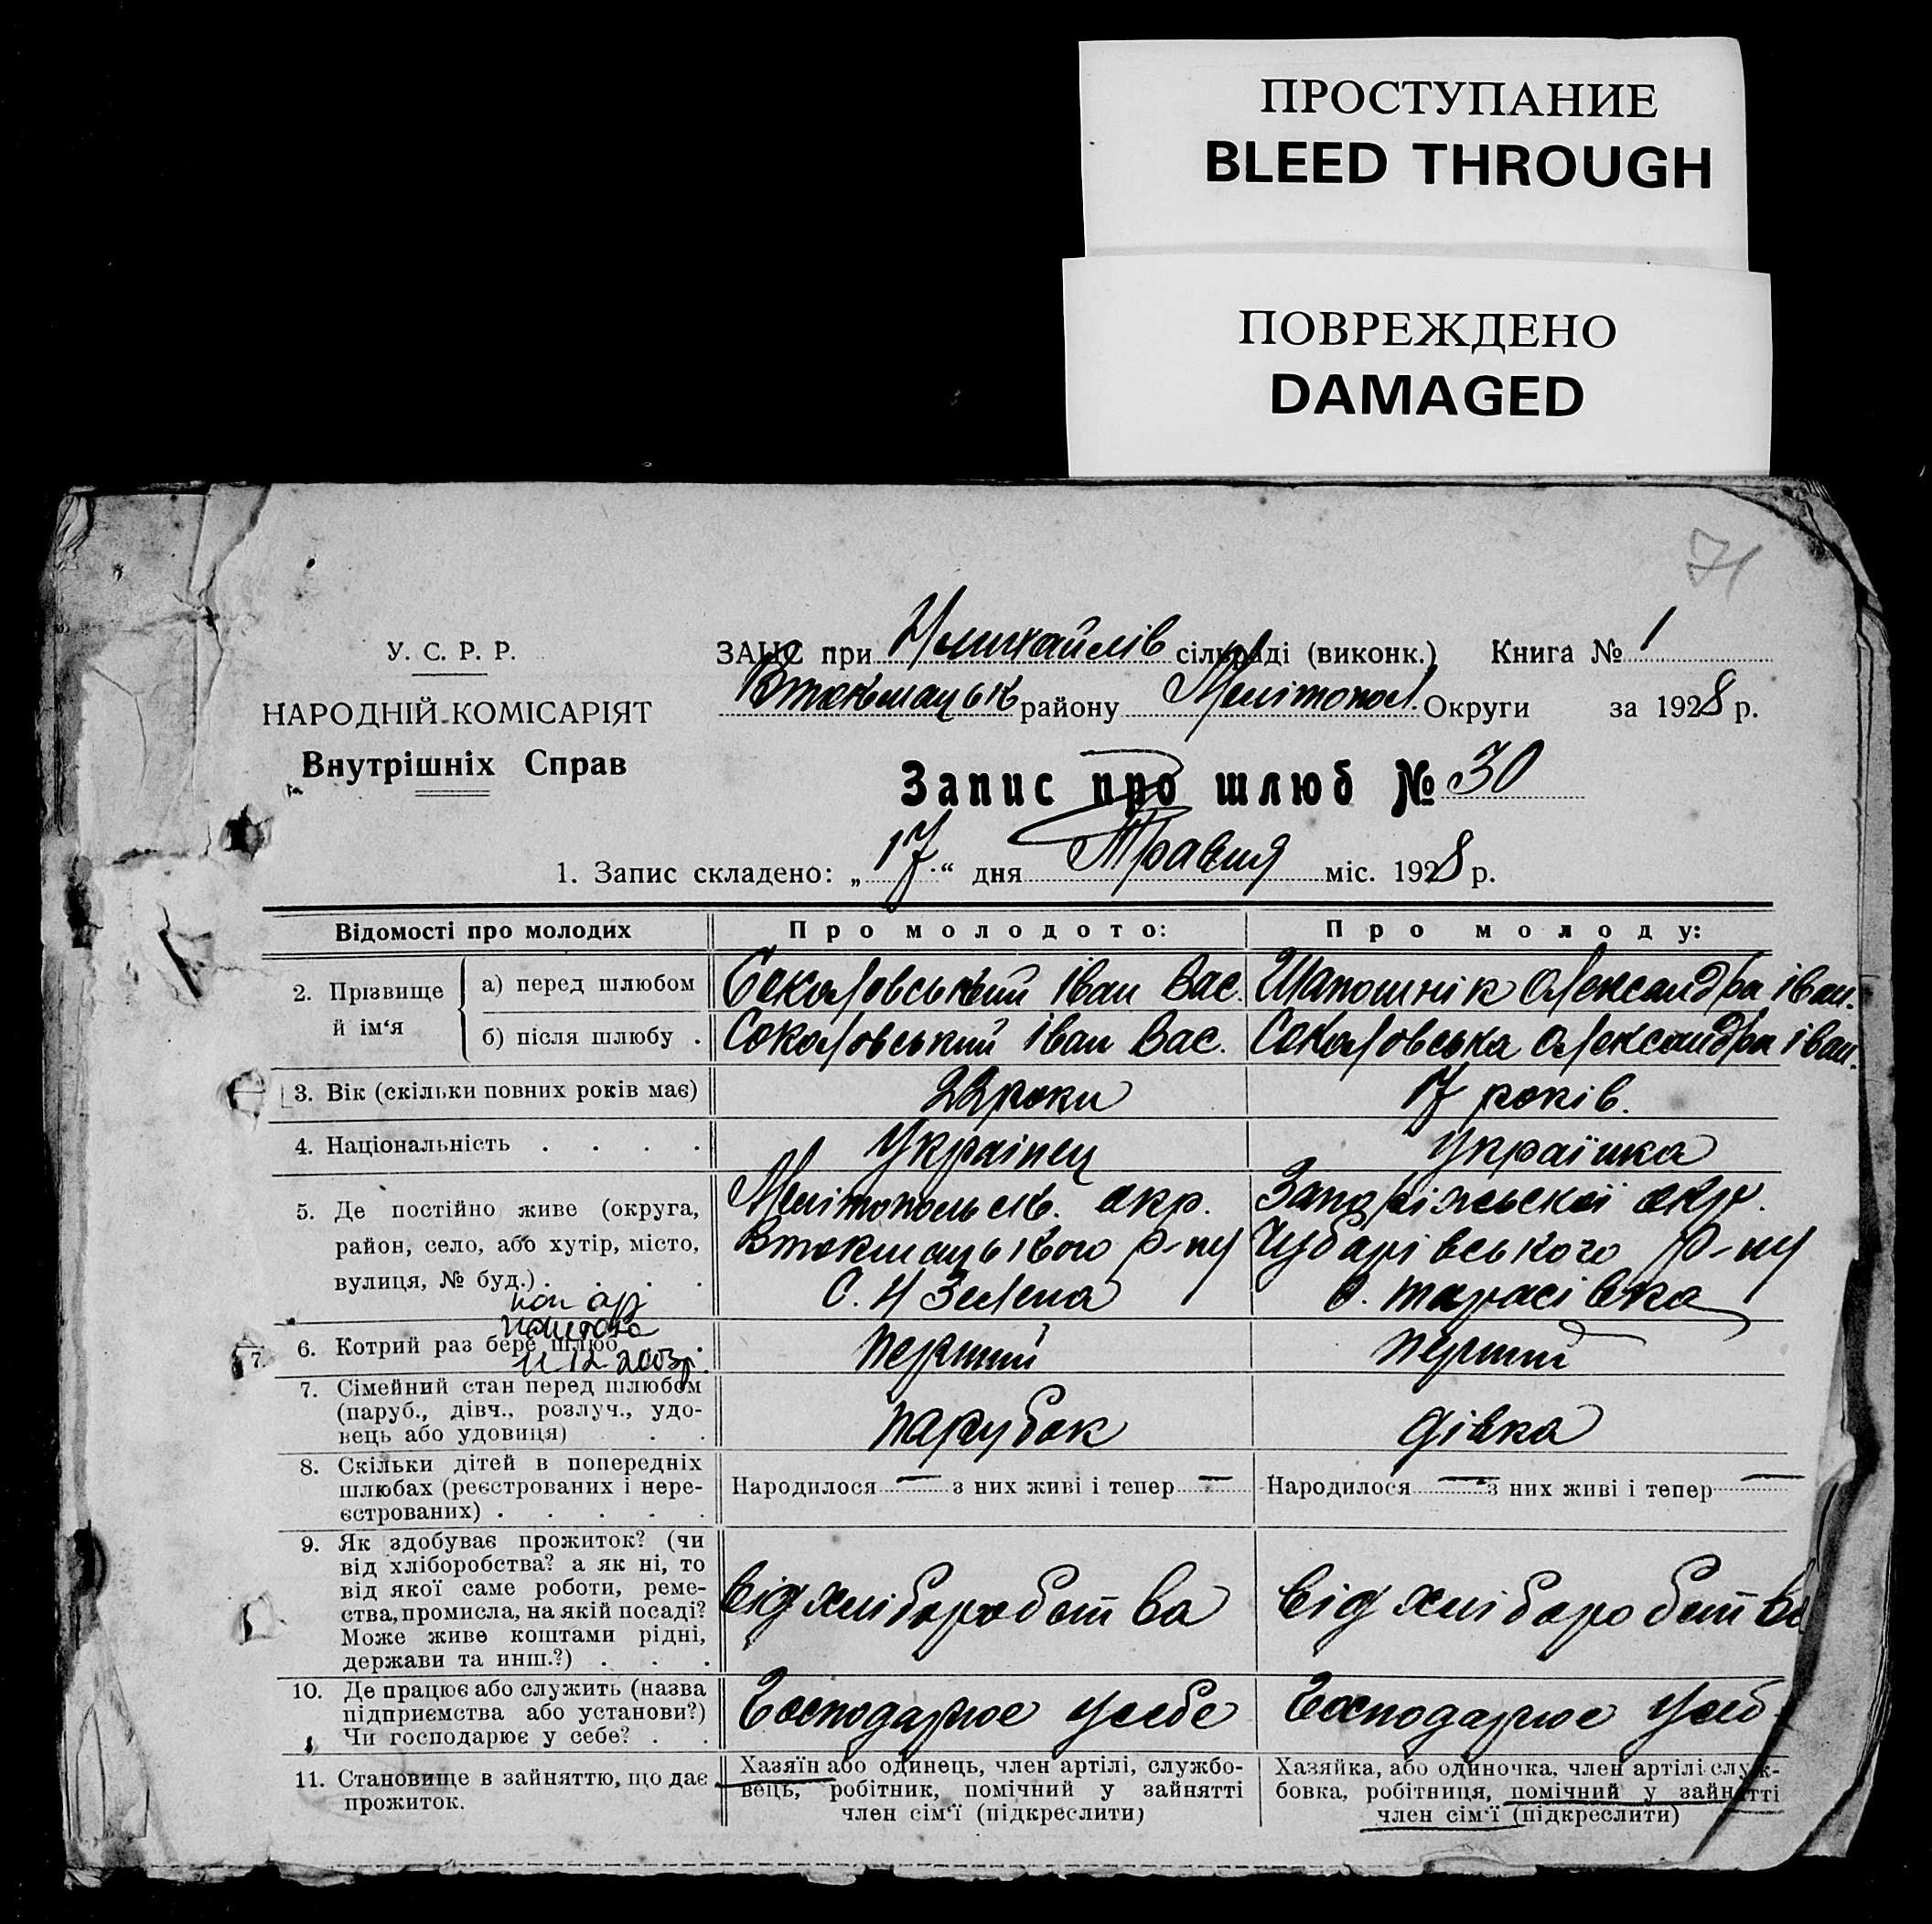 ПРОСТУПАНИЕ
BLEED THROUGH
ПОВРЕЖДЕНО
DAMAGED
71
У. С. Р. Р.
НАРОДНІЙ КОМІСАРІЯТ
Внутрішніх Справ
ЗАЦС при Н михайлів сільраді (виконк.) Книга № 1
Втокмацьк району Мелітопол. Округи за 1928 р.
Запис про шлюб № 30
1. Запис складено: „17“ дня Травня міс. 1928 р.
Відомості про молодих Про молодого: Про молоду:
2. Прізвище й ім‘я а) перед шлюбом Соколовський Іван Вас. Шапошнік Олександра Іван.
б) після шлюбу . Соколовський Іван Вас. Соколовська Олександра Іван.
3. Вік (скільки повних років має) 22 роки 17 років.
4. Національність . . . . Українец Українка
5. Де постійно живе (округа, Мелітопольськ. окр. Запорізьскої окр.
район, село, або хутір, місто, Втокмацького р-ну Чубарівського р-ну
вулиця, № буд.) . . . . С. Н Зелена с. Тарасівка
11 12 2003р.
6. Котрий раз бере шлюб . . Перший Перший
7. Сімейний стан перед шлюбом
(паруб., дівч., розлуч., удо-
вець або удовиця) . . парубок дівка
8. Скільки дітей в попередніх
шлюбах (реєстрованих і нере- Народилося — з них живі і тепер — Народилося — з них живі і тепер —
єстрованих) . . . . .
9. Як здобуває прожиток? (чи
від хліборобства? а як ні, то
від якої саме роботи, реме-
ства, промисла, на якій посаді? від хліборобства від хліборобства
Може живе коштами рідні,
держави та инш.?) . . .
10. Де працює або служить (назва
підприємства або установи?) Господарює усебе Господарює усеб
Чи господарює у себе? . .
11. Становище в зайняттю, що дає
прожиток.
Хазяїн або одинець, член артілі, службо-
вець, робітник, помічний у зайнятті
член сім‘ї (підкреслити)
Хазяйка, або одиночка, член артілі служ-
бовка, робітниця, помічний у зайнятті
член сім‘ї (підкреслити)